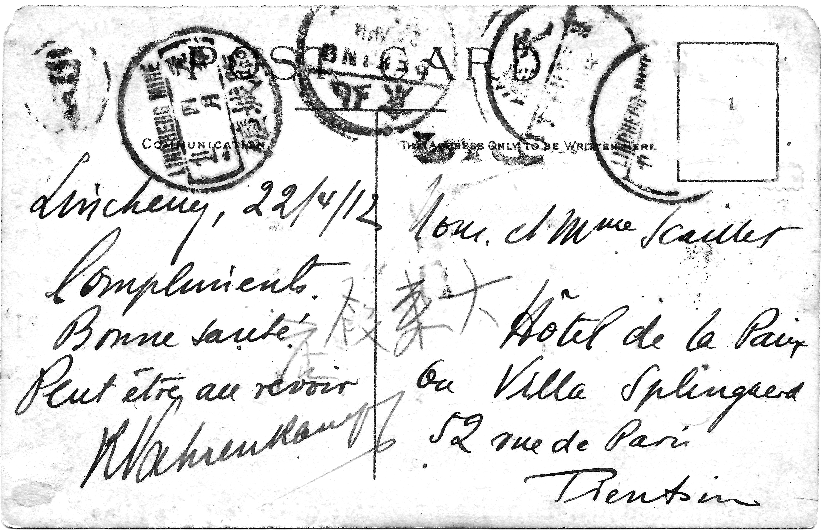 POST CARD
COMMUNICATION
THE ADDRESS ONLY TO BE WRITTEN HERE
LINCHENG MINE
LINCHENG MINE
1
Lincheng, 22/4/12
Compliments.
Bonne santé
Peut être au revoir
K Vahrenkamp
Mon. et Mme Scailles
Hôtel de la Paix
Ou Villa Splingaerd
52 rue de Paris
Tientsin
大東